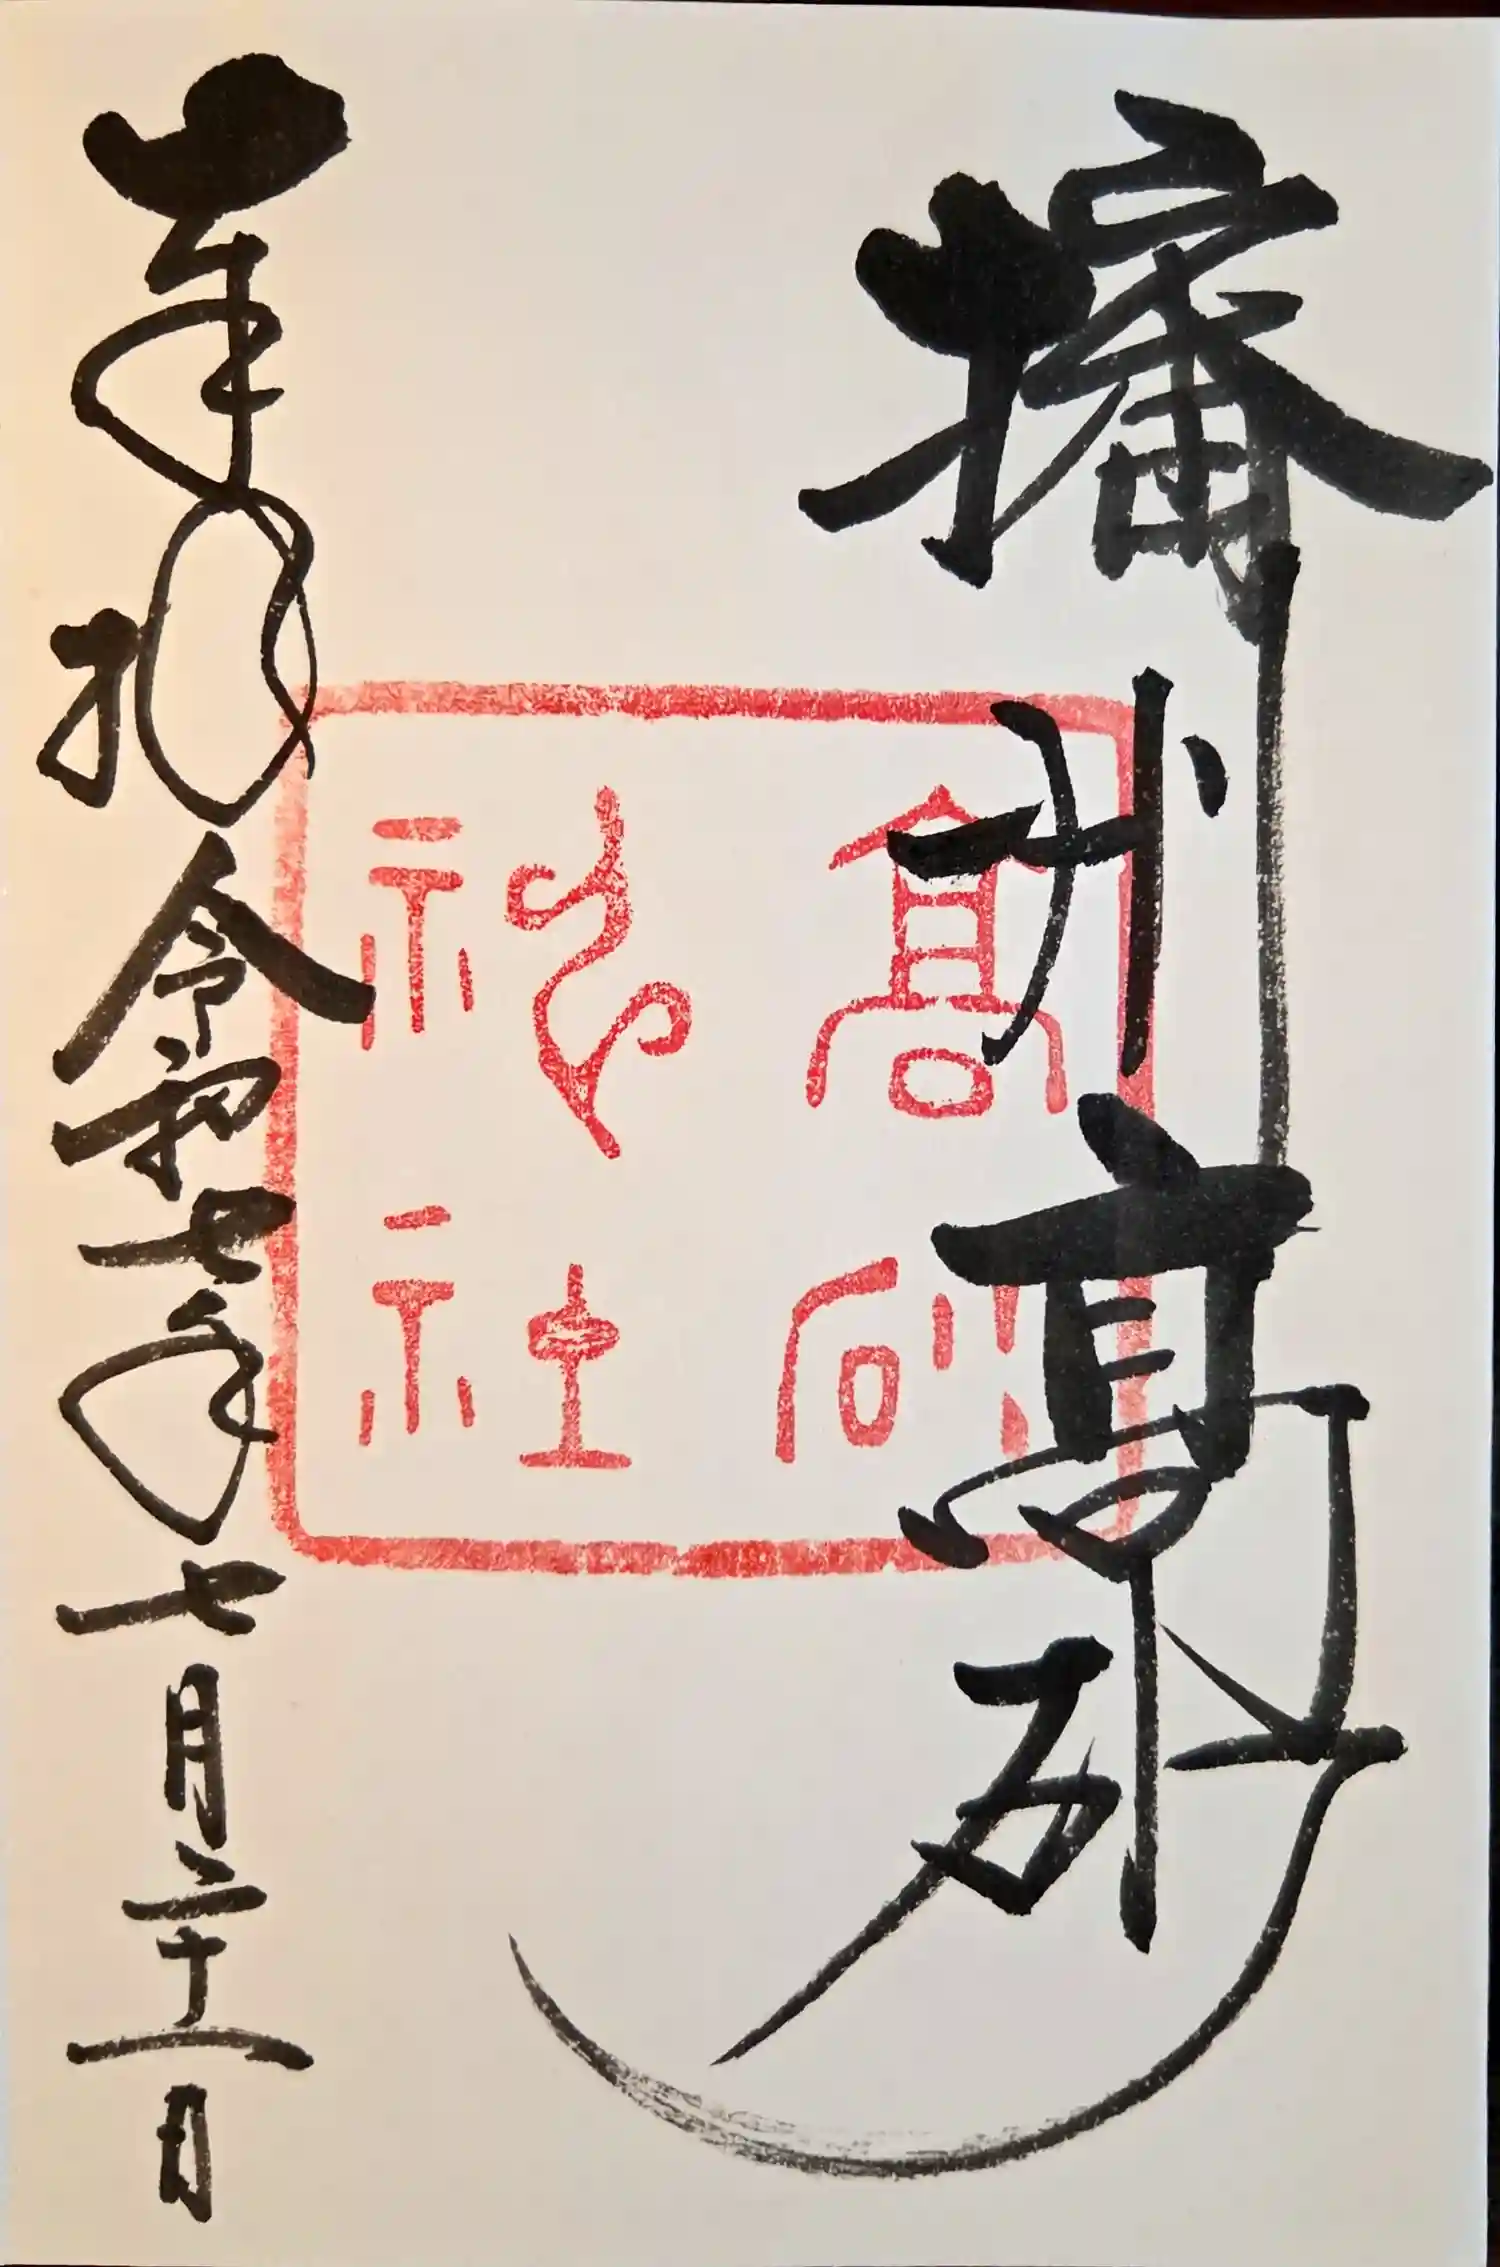 播州高砂
高砂
神社
奉拝令和七年七月二十一日